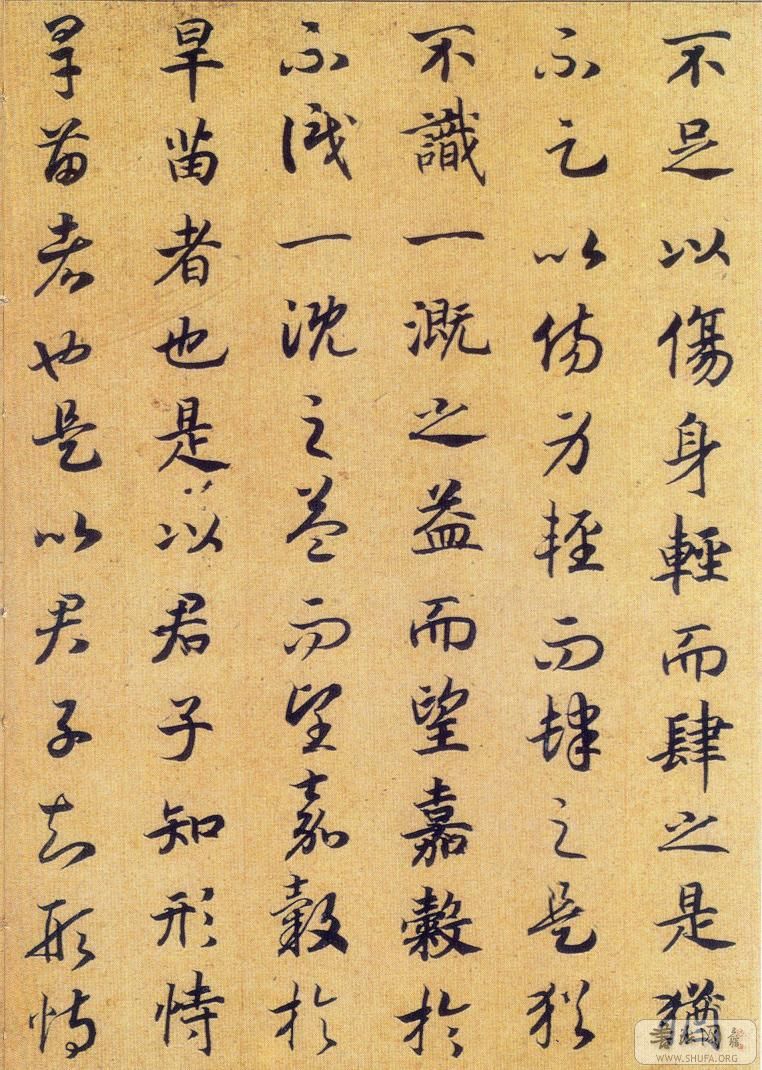 不足以傷身輕而肆之是猶
不足以傷身輕而肆之是猶
不識一溉之益而望嘉穀於
不識一溉之益而望嘉穀於
旱苗者也是以君子知形恃
旱苗者也是以君子知形恃
WWW.SHUFA.ORG